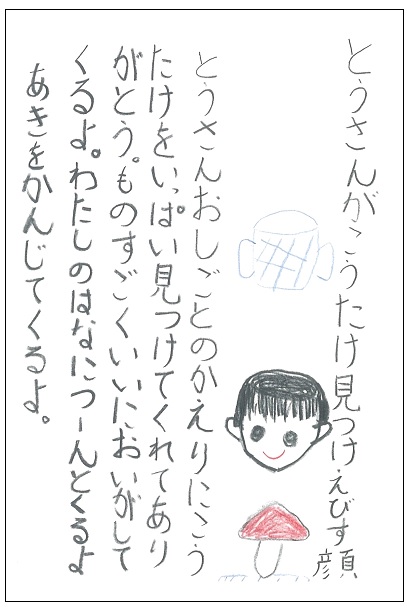 とうさんがこうたけ見つけえびす顔
とうさんおしごとのかえりにこう
たけをいっぱい見つけてくれてあり
がとう。ものすごくいいにおいがして
くるよ。わたしのはなにつーんとくるよ
あきをかんじてくるよ。